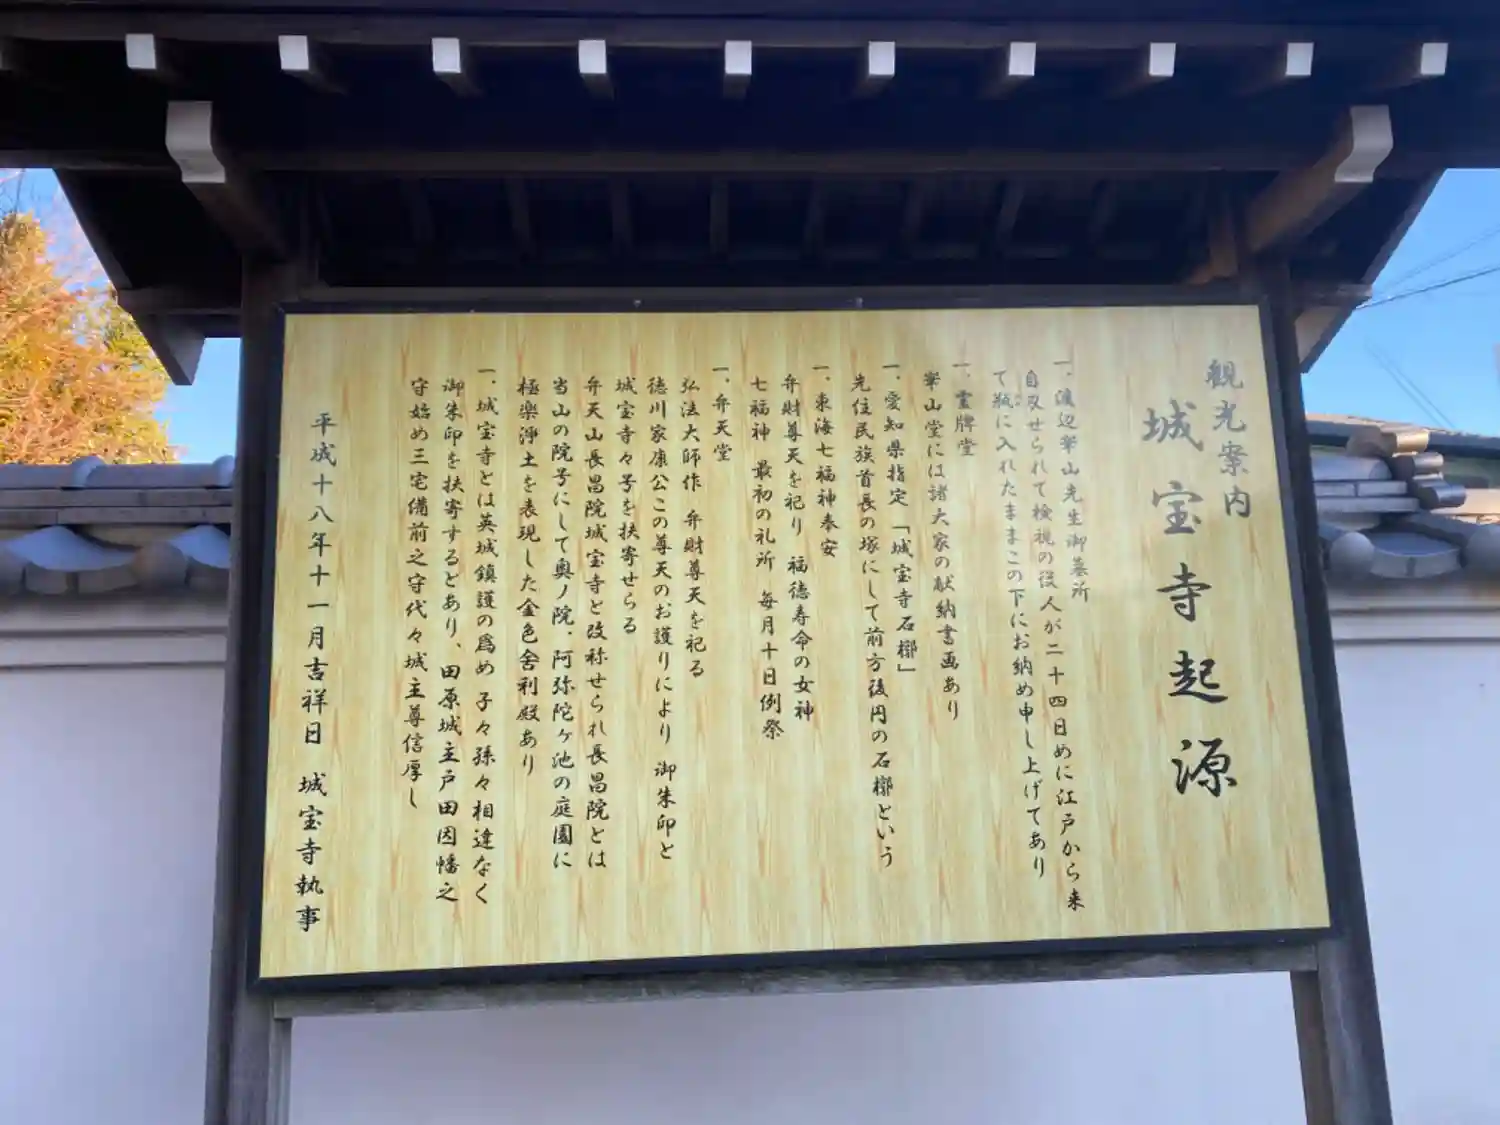 観光案内
城宝寺起源
一、渡辺崋山先生御墓所
自刃せられて検視の役人が二十四日めに江戸から来
て瓶に入れたままこの下にお納め申し上げてあり
一、霊牌堂
崋山堂には諸大家の献納書画あり
一、愛知県指定「城宝寺石槨」
先住民族首長の塚にして前方後円の石槨という
一、東海七福神奉安
弁財尊天を祀り 福徳寿命の女神
七福神 最初の礼所 毎月十日例祭
一、弁天堂
弘法大師作 弁財尊天を祀る
徳川家康公この尊天のお護りにより 御朱印と
城宝寺々号を扶寄せらる
弁天山長昌院城宝寺と改称せられ長昌院とは
当山の院号にして奥ノ院、阿弥陀ヶ池の庭園に
極楽浄土を表現した金色舎利殿あり
一、城宝寺とは英城鎮護の為め 子々孫々相違なく
御朱印を扶寄するとあり、田原城主戸田因幡之
守始め三宅備前之守代々城主尊信厚し
平成十八年十一月吉祥日 城宝寺執事